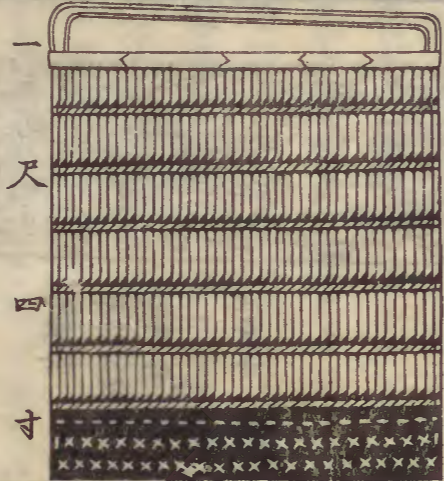 一尺四寸